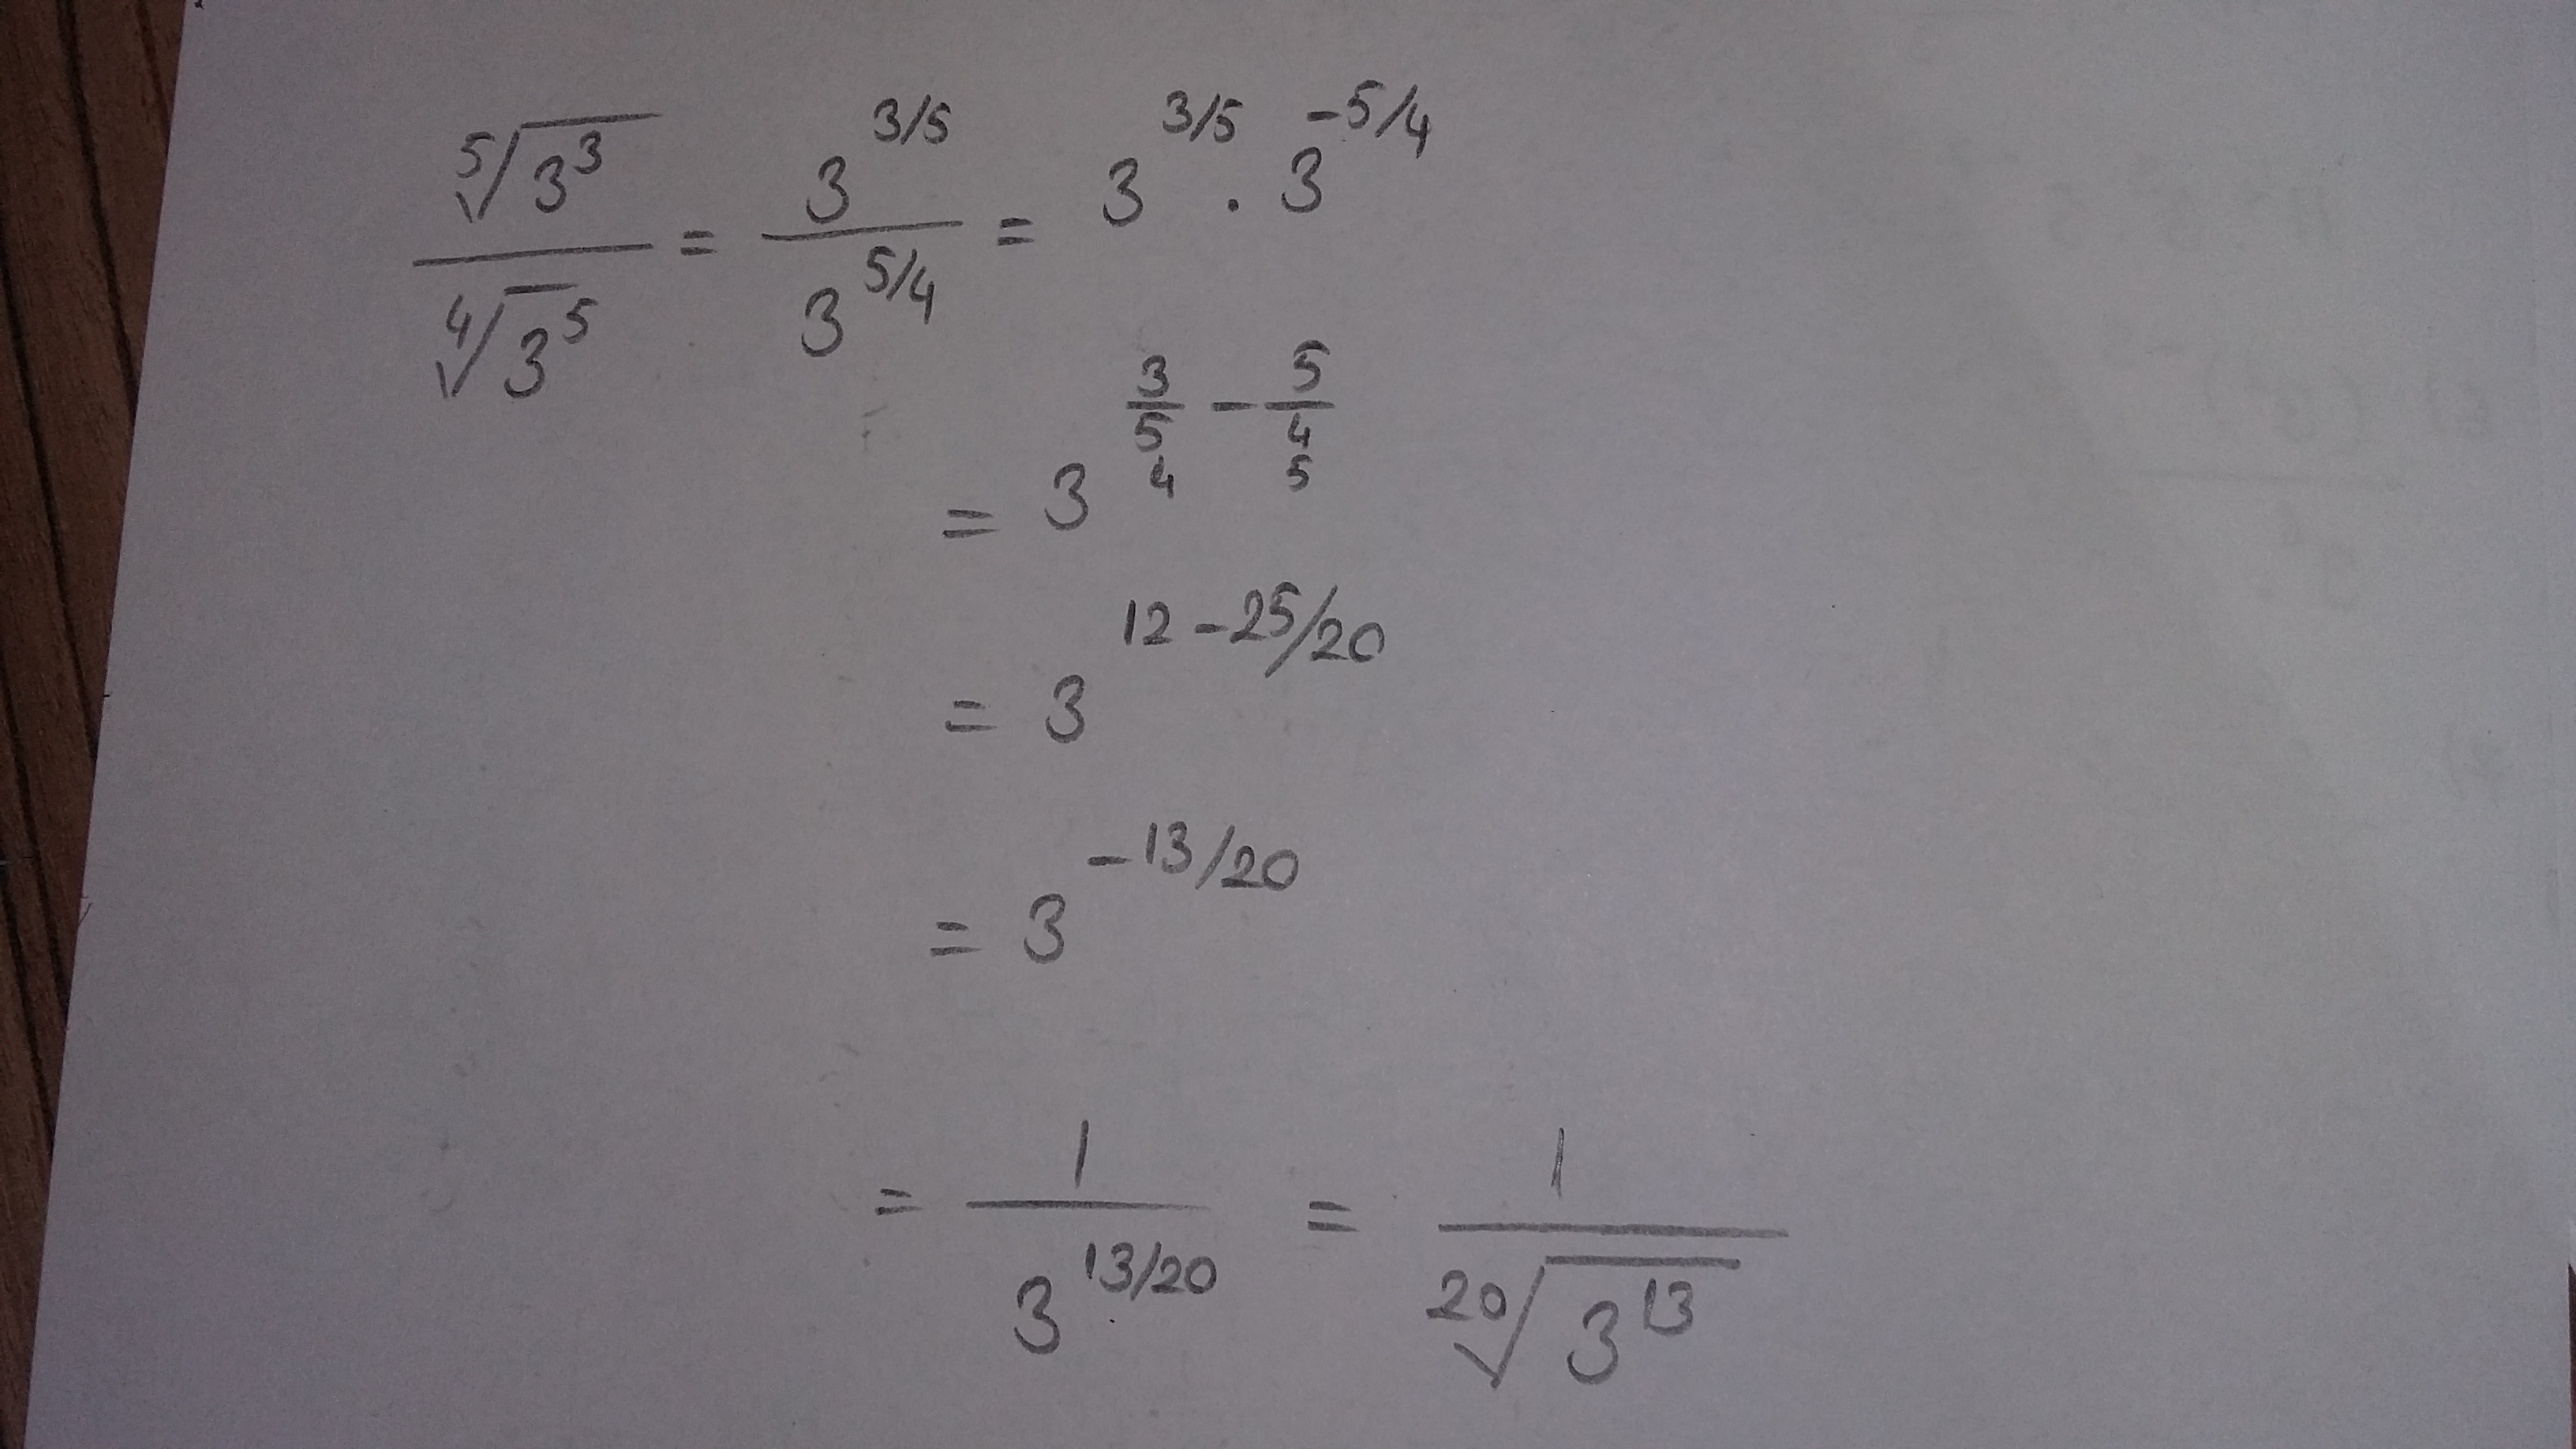 ⁵√3³ / ⁴√3⁵ = 3^3/5 / 3^5/4 = 3^3/5 . 3^-5/4
= 3^(3/5 - 5/4)
4 5
= 3^12-25/20
= 3^-13/20
= 1 / 3^13/20 = 1 / ²⁰√3¹³